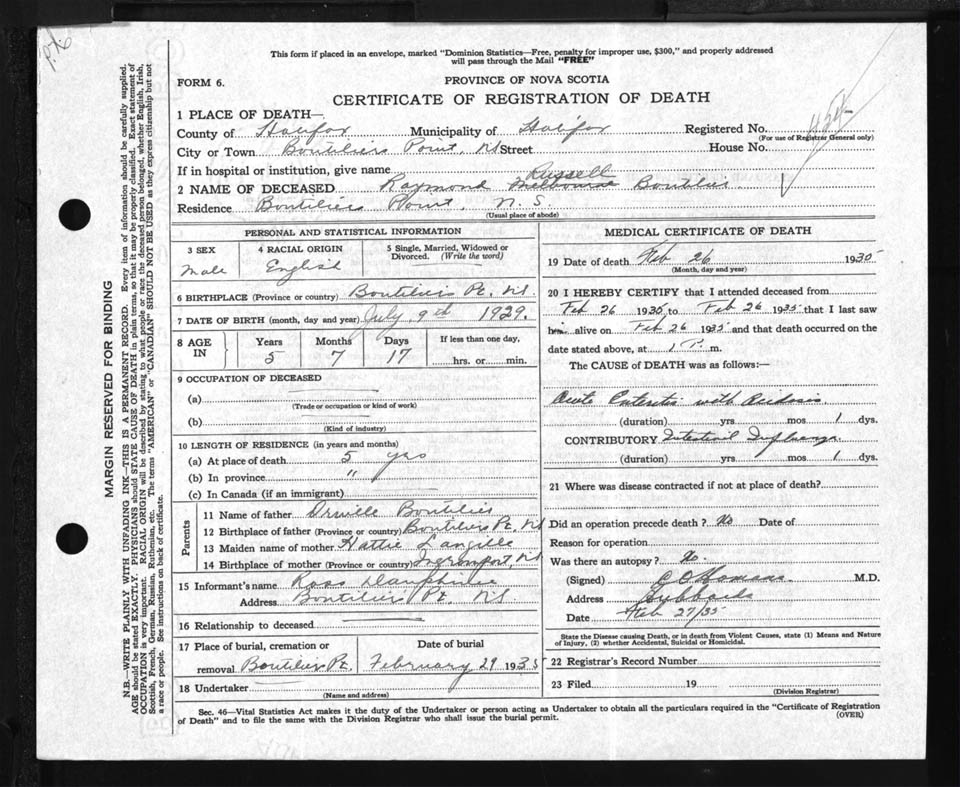 P.76
This form if placed in an envelope, marked "Dominion Statistics—Free, penalty for improper use, $300," and properly addressed
will pass through the Mail "FREE"
FORM 6.
PROVINCE OF NOVA SCOTIA
CERTIFICATE OF REGISTRATION OF DEATH
1 PLACE OF DEATH—
County of Halifax Municipality of Halifax Registered No.
(For use of Registrar General only)
City or Town Boutiliers Point, NS Street House No.
If in hospital or institution, give name
Russell
2 NAME OF DECEASED Raymond Melbourne Boutilier
Residence Boutiliers Point, N. S.
(Usual place of abode)
PERSONAL AND STATISTICAL INFORMATION
3 SEX
Male
4 RACIAL ORIGIN
English
5 Single, Married, Widowed or
Divorced. (Write the word)
6 BIRTHPLACE (Province or country) Boutiliers Pt. NS.
7 DATE OF BIRTH (month, day and year) July 9th 1929.
8 AGE IN
Years Months Days If less than one day,
5 7 17 hrs. or min.
9 OCCUPATION OF DECEASED
(a)
(Trade or occupation or kind of work)
(b)
(Kind of industry)
10 LENGTH OF RESIDENCE (in years and months)
(a) At place of death 5 yrs
(b) In province "
(c) In Canada (if an immigrant)
Parents
11 Name of father Orville Boutilier
12 Birthplace of father (Province or country) Boutiliers Pt. NS
13 Maiden name of mother Hattie Langille
14 Birthplace of mother (Province or country) Ingramport, NS
15 Informant's name Ross Dauphinee
Address Boutiliers Pt. NS
16 Relationship to deceased
17 Place of burial, cremation or Date of burial
removal Boutiliers Pt. February 29 1935
18 Undertaker
(Name and address)
MEDICAL CERTIFICATE OF DEATH
19 Date of death Feb 26 1935
(Month, day and year)
20 I HEREBY CERTIFY that I attended deceased from
Feb 26 1935 to Feb 26 1935 that I last saw
him alive on Feb 26 1935 and that death occurred on the
date stated above, at 1 P. m.
The CAUSE of DEATH was as follows:—
Acute Enteritis with Acidosis
(duration) yrs mos 1 dys.
CONTRIBUTORY Intestinal Influenza
(duration) yrs mos 1 dys.
21 Where was disease contracted if not at place of death?
Did an operation precede death? No Date of
Reason for operation
Was there an autopsy? No.
(Signed) M.D.
Address Hubbards
Date Feb 27/35
State the Disease causing Death, or in death from Violent Causes, state (1) Means and Nature
of Injury, (2) whether Accidental, Suicidal or Homicidal.
22 Registrar's Record Number
23 Filed 19
(Division Registrar)
Sec. 46—Vital Statistics Act makes it the duty of the Undertaker or person acting as Undertaker to obtain all the particulars required in the "Certificate of Registration
of Death" and to file the same with the Division Registrar who shall issue the burial permit.
(OVER)
MARGIN RESERVED FOR BINDING
N.B.—WRITE PLAINLY WITH UNFADING INK—THIS IS A PERMANENT RECORD. Every item of information should be carefully supplied.
AGE should be stated EXACTLY. PHYSICIANS should STATE CAUSE OF DEATH in plain terms, so that it may be properly classified. Exact statement of
OCCUPATION is very important. RACIAL ORIGIN will be described by stating to what people or race the deceased person belonged, whether English, Irish,
Scottish, French, German, Russian, Ruthenian, etc. The terms "AMERICAN" or "CANADIAN" SHOULD NOT BE USED as they express citizenship but not
a race or people. See instructions on back of certificate.